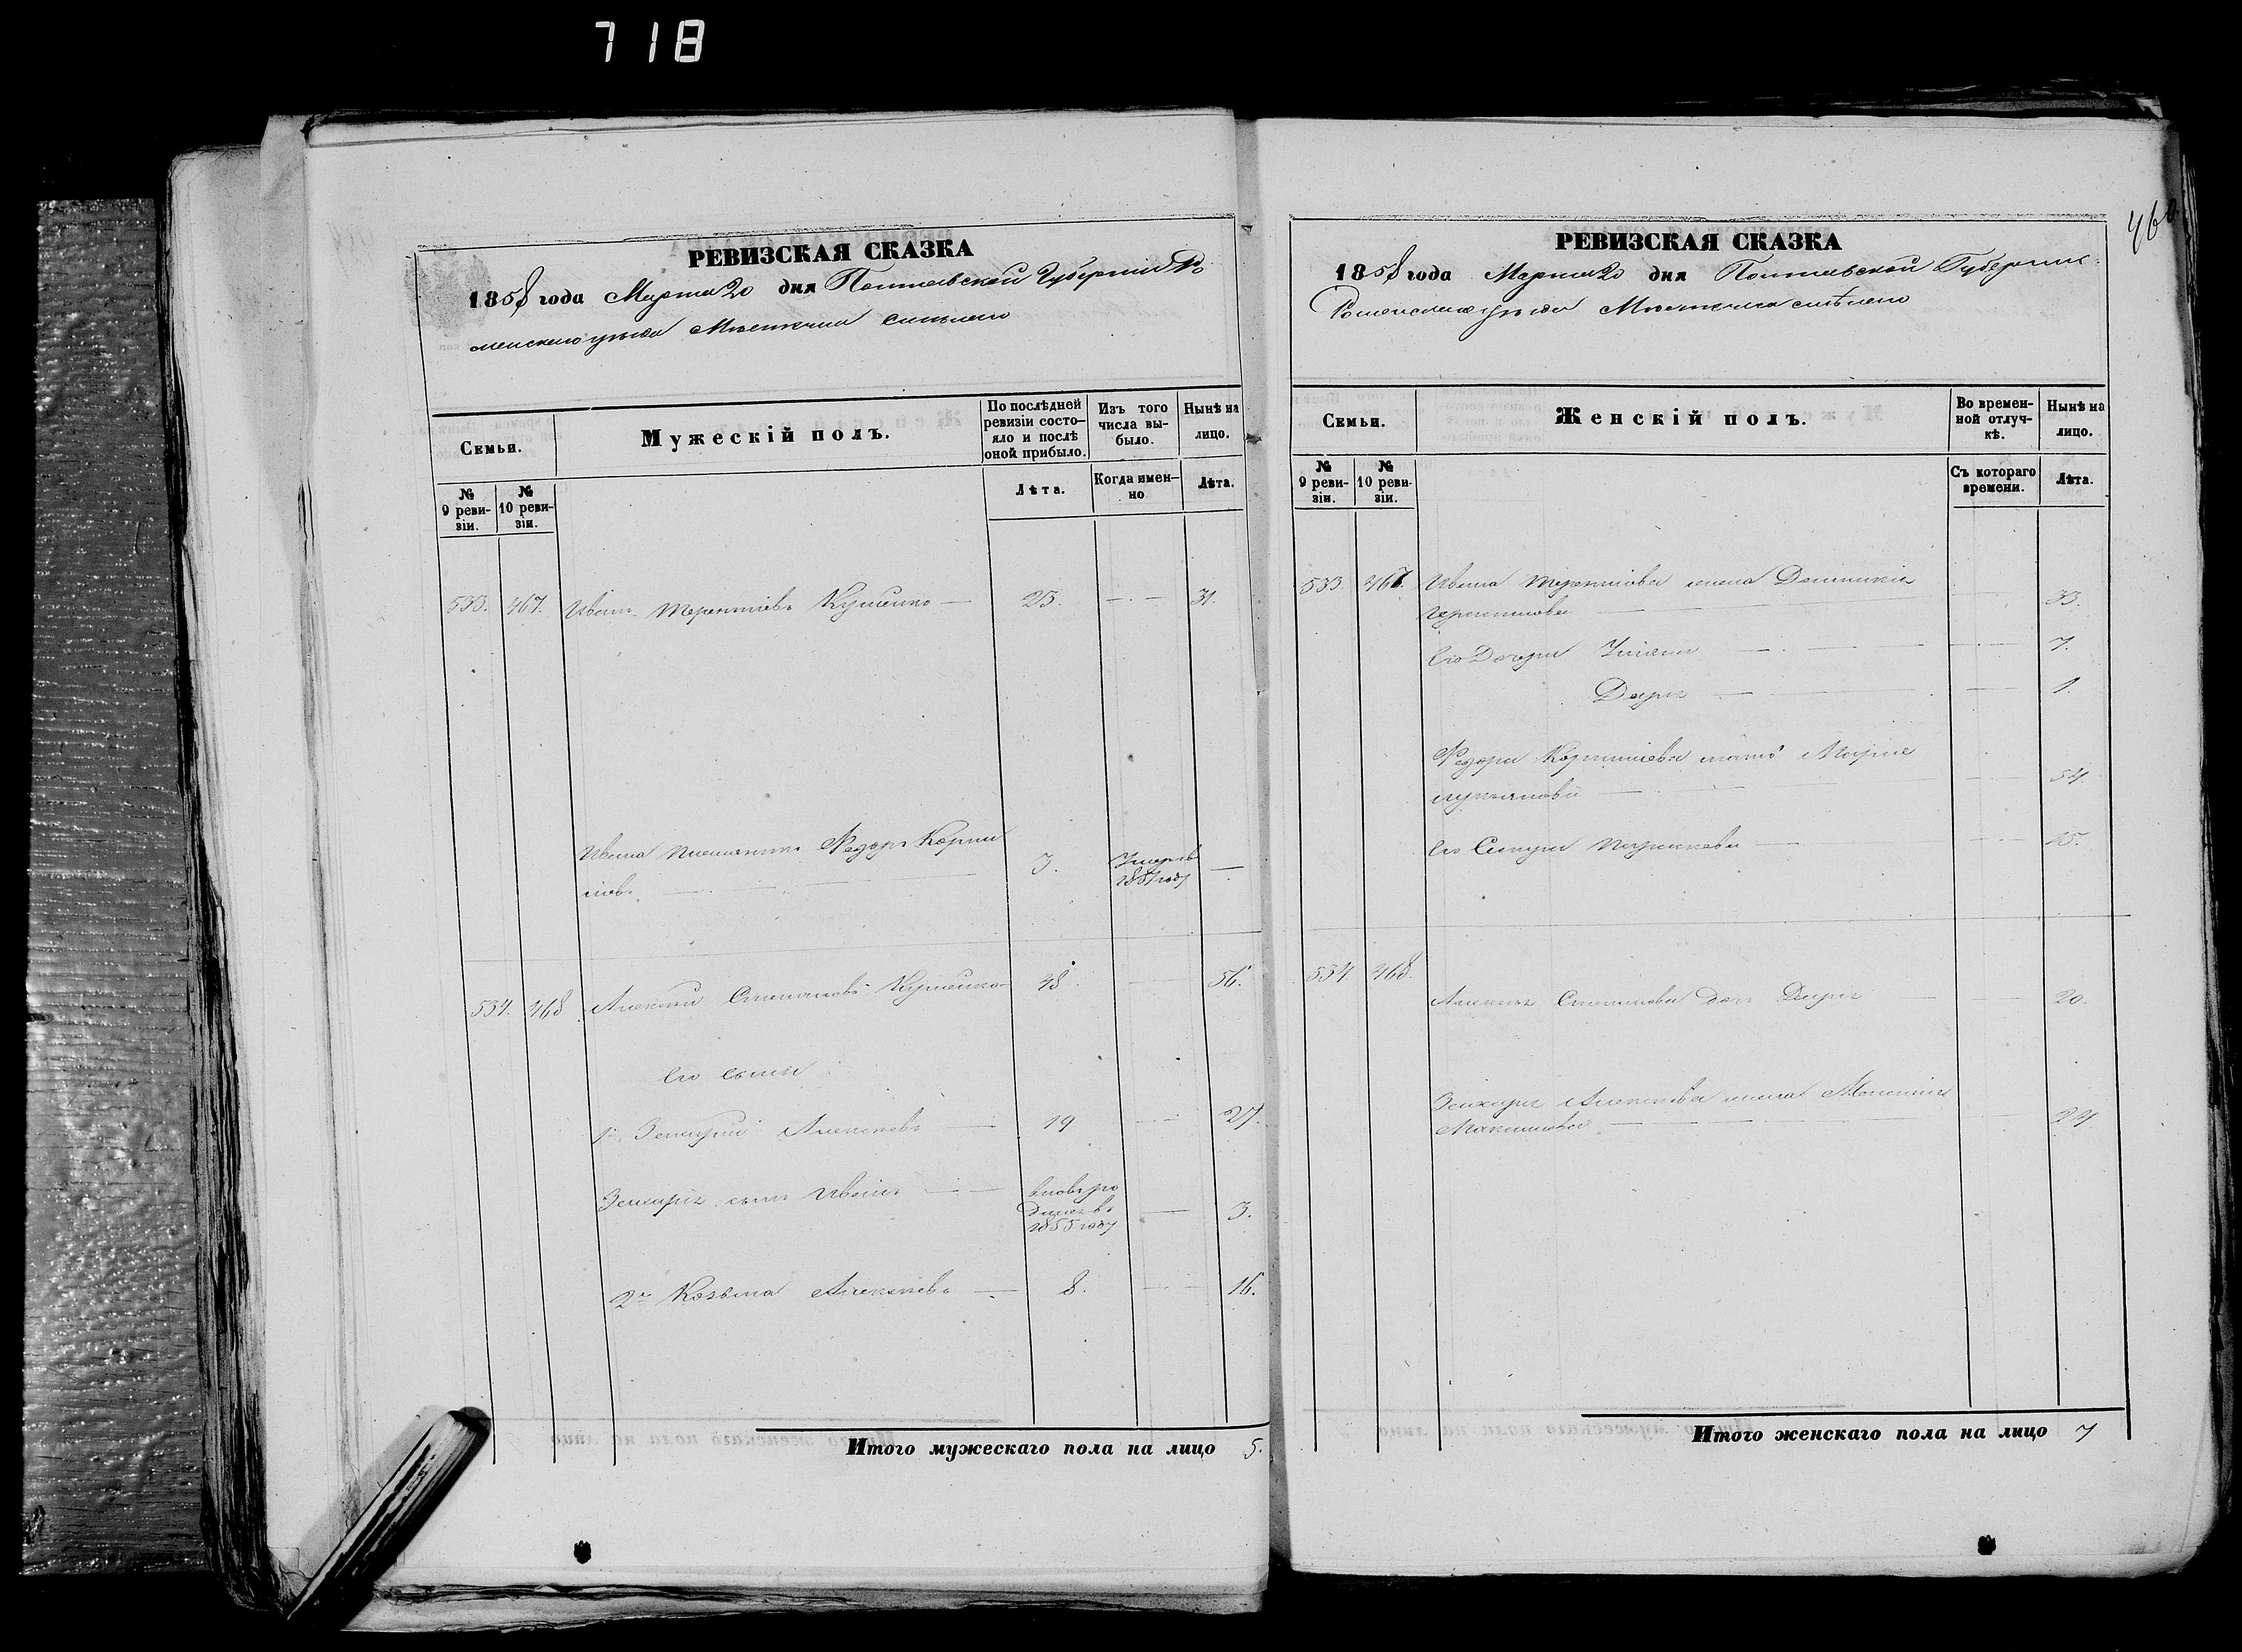 718
РЕВИЗСКАЯ СКАЗКА
1858 года Марта 20 дня Полтавской Губерніи Ро
менскаго уѣзда Мѣстечка Смѣлаго
Семьи.
Мужескій полъ.
По послѣдней ревизіи состояло и послѣ оной прибыло.
Изъ того числа выбыло.
Нынѣ на лицо.
№ 9 ревизіи.
№ 10 ревизіи.
Лѣта.
Когда именно
Лѣта.
533. 467. Иванъ Терентіевъ 25. 31.
Ивана племянникъ Федоръ Корни
ліевъ 3. Умеръ в
1857 году
534. 468 Алексѣй Степановъ 48. 56.
Его сыны
1й Захарій Алексѣевъ 19 27.
Захарія сынъ Иванъ вновь ро
жденъ в
1855 году 3.
2й Козьма Алексѣевъ 8. 16.
Итого мужескаго пола на лицо 5.
460
РЕВИЗСКАЯ СКАЗКА
1858 года Марта 20 дня Полтавской Губерніи
Роменскаго уѣзда Мѣстечка Смѣлаго
Семьи.
Женскій полъ.
Во временной отлучкѣ.
Нынѣ на лицо.
№ 9 ревизіи.
№ 10 ревизіи.
Съ котораго времени.
Лѣта.
533 467. Ивана Терентіева жена
33.
Его Дочери Уліяна 7.
Дарія 1.
Федора Корниліева мать Марія
Лукьянова 54.
Его Сестра 15.
534 468.
Алексѣя Степанова дочь Дарія 20.
Захарія Алексѣева жена
Максимова 24.
Итого женскаго пола на лицо 7